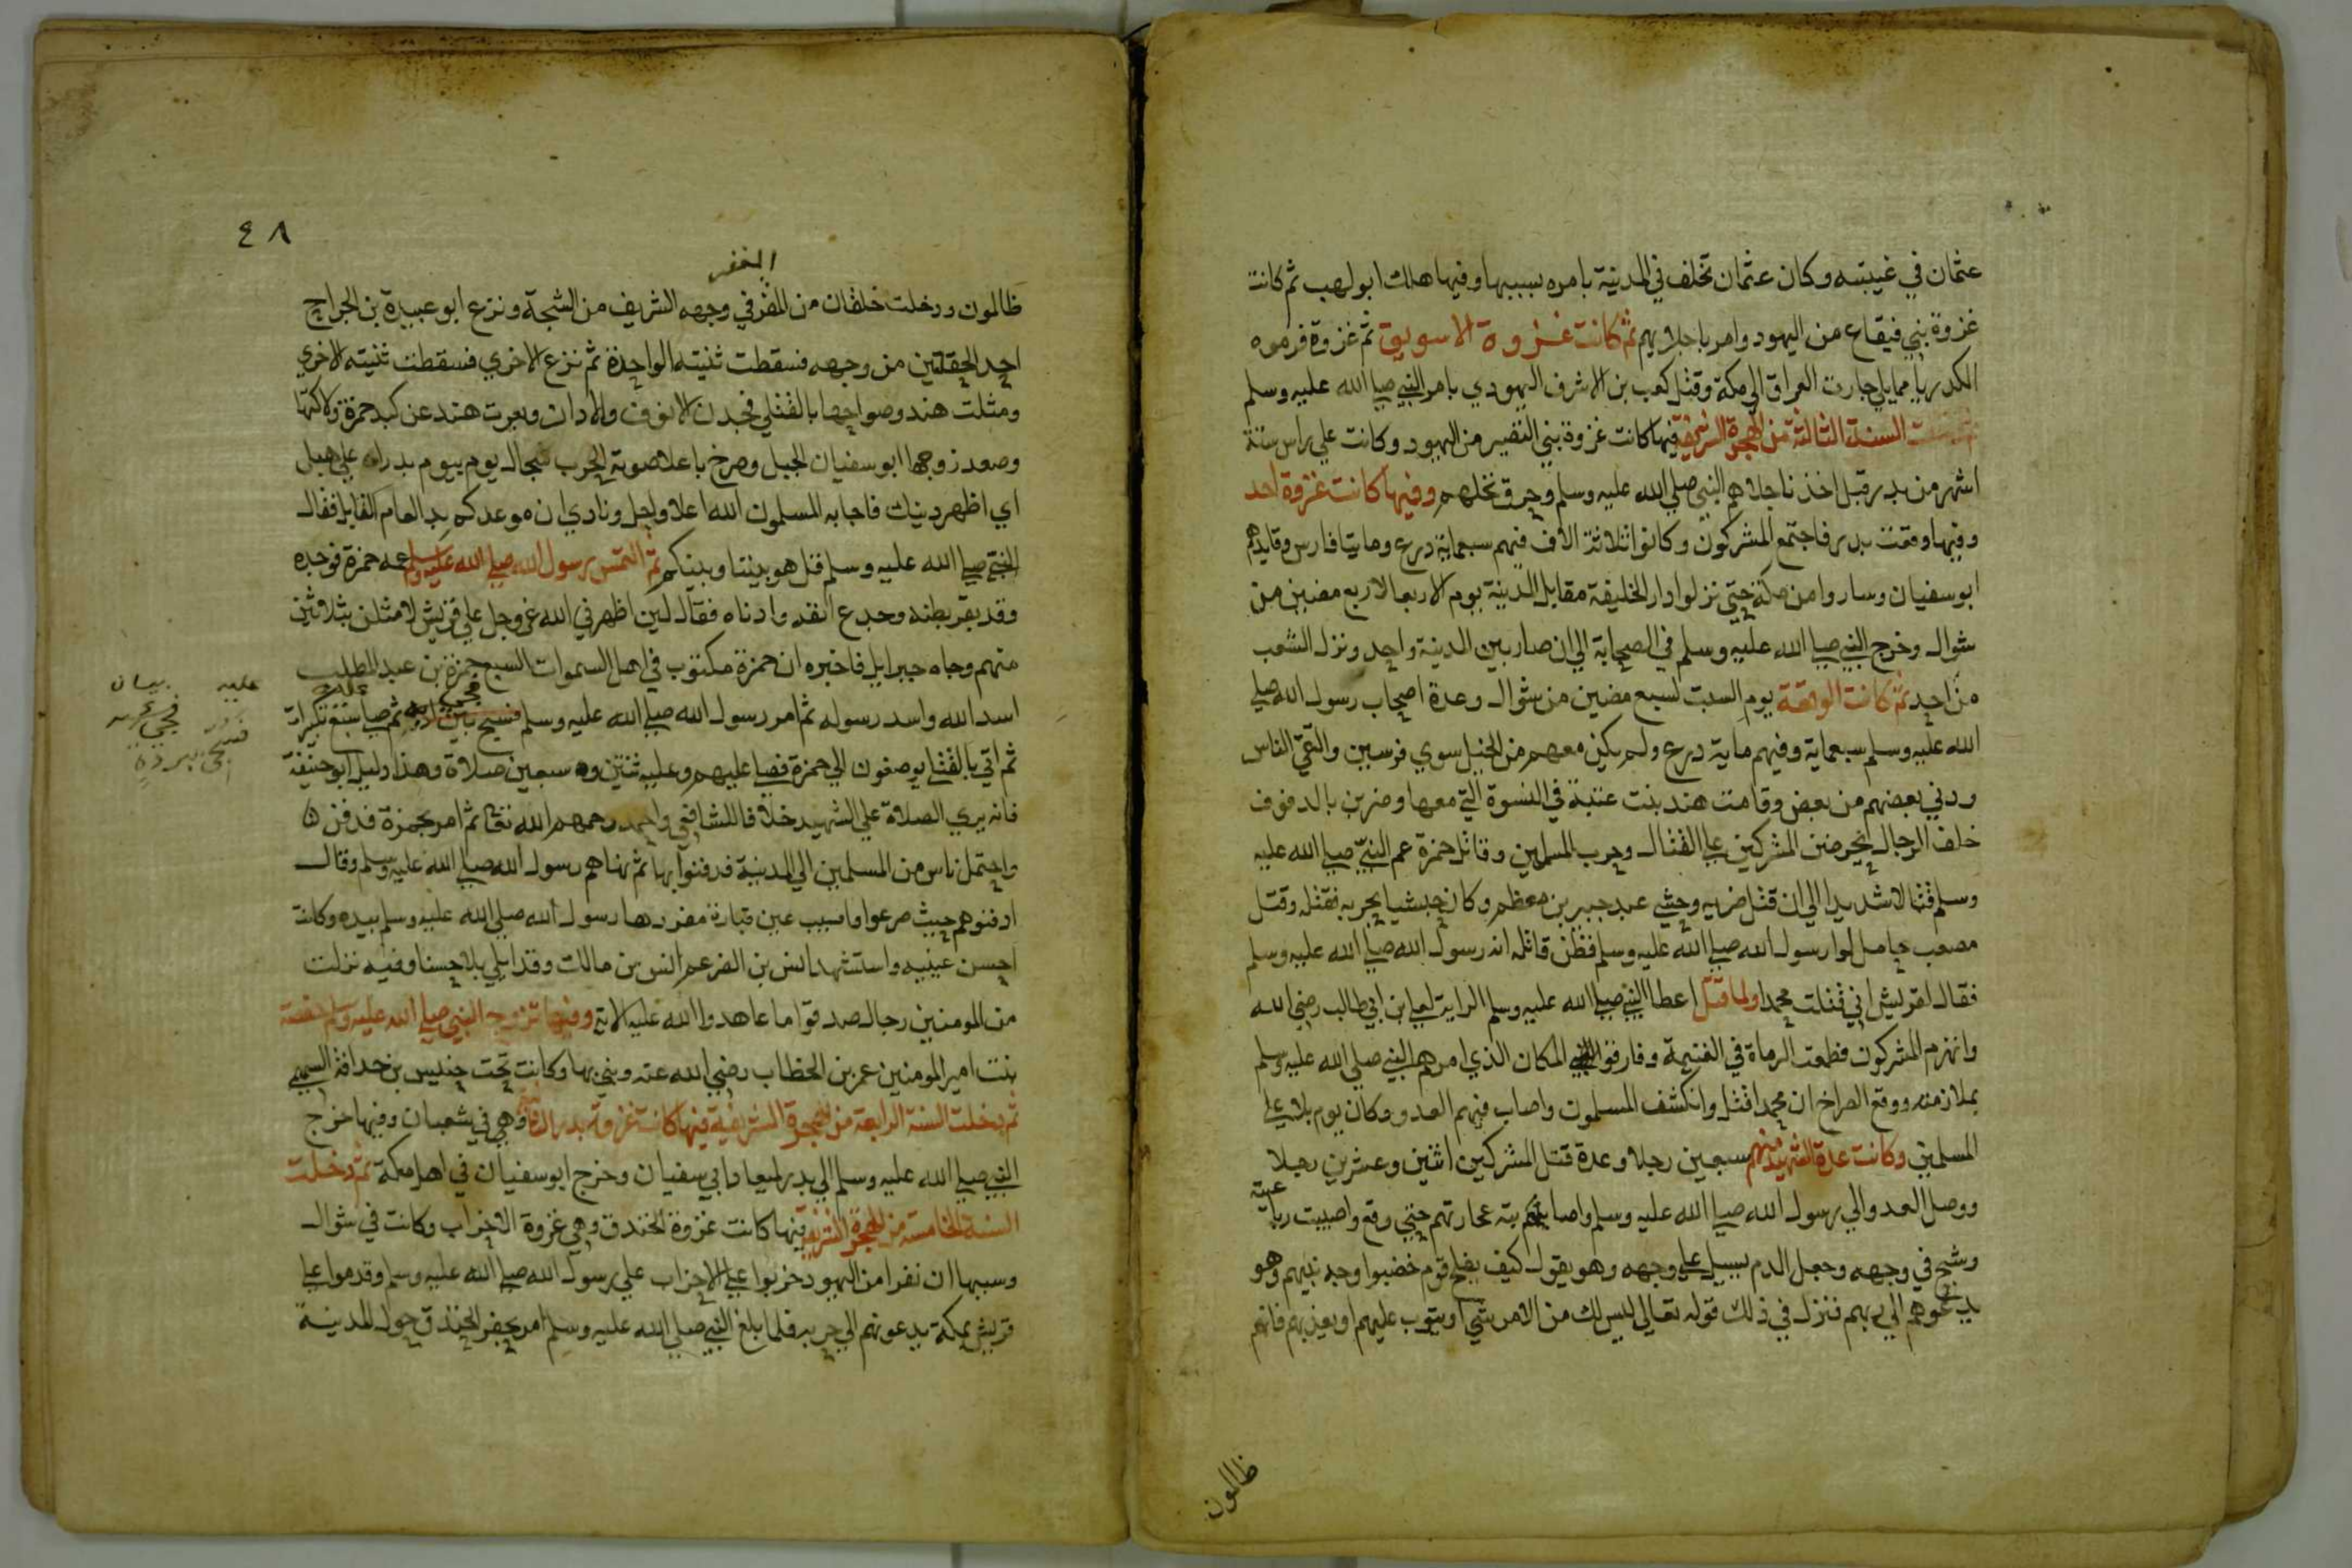 عثمان في غيبته وكان عثمان تخلف في المدينة بامره بسببها وفيها هلك ابو لهب ثم كانت
غزوة بني قينقاع من اليهود وامر باجلايهم ثم كانت غزوة الاسويق ثم غزوة قرموه
الكدر يا مما يلي جارت العراق الي مكة وقتل كعب بن الاشرف اليهودي بامر النبي صلي الله عليه وسلم
السنة الثالثة من الهجرة الشريفة فيها كانت غزوة بني النضير من اليهود وكانت علي راس ستة
اشهر من بدر قبل احد فاجلاهم النبي صلي الله عليه وسلم وحرق نخلهم وفيها كانت غزوة احد
وفيها وقعت بدر فاجتمع المشركون وكانوا ثلاثة الاف فيهم سبعماية درع ومايتا فارس وقايدهم
ابو سفيان وساروا من مكة حتي نزلوا دار الخليفة مقابل المدينة يوم الاربعا لاربع مضين من
شوال وخرج النبي صلي الله عليه وسلم في الصحابة الي ان صار بين المدينة واحد ونزل الشعب
من احد ثم كانت الوقعة يوم السبت لسبع مضين من شوال وعدة اصحاب رسول الله صلي
الله عليه وسلم سبعماية وفيهم ماية درع ولم يكن معهم من الخيل سوي فرسين والتقي الناس
ودني بعضهم من بعض وقامت هند بنت عتبة في النسوة التي معها وضربن بالدفوف
خلف الرجال يحرضن المشركين علي القتال وحرب المسلمين وقاتل حمزة عم النبي صلي الله عليه
وسلم قتالا شديدا الي ان قتل ضربه وحشي عبد جبير بن معظم وكان حبشيا بحربه فقتله وقتل
مصعب حامل لوا رسول الله صلي الله عليه وسلم فظن قاتله انه رسول الله صلي الله عليه وسلم
فقال لقريش اني قتلت محمدا ولما قتل اعطا النبي صلي الله عليه وسلم الراية لعلي بن ابي طالب رضي الله
وانهزم المشركون فطمعت الرماة في الغنيمة وفارقوا المكان الذي امرهم النبي صلي الله عليه وسلم
بملازمته ووقع الصراخ ان محمدا قتل وانكشف المسلمون واصاب فيهم العدو وكان يوم بلا علي
المسلمين وكانت عدة الشهدا منهم سبعين رجلا وعدة قتل المشركين اثنين وعشرين رجلا
ووصل العدو الي رسول الله صلي الله عليه وسلم واصابته حجارتهم حتي وقع واصيبت رباعيته
وشج في وجهه وجعل الدم يسيل علي وجهه وهو يقول كيف يفلح قوم خضبوا وجه نبيهم وهو
يدعوهم الي ربهم فنزل في ذلك قوله تعالي ليس لك من الامر شي او يتوب عليهم او يعذبهم فانهم
ظالمون
٤٨
المغفر
ظالمون ودخلت حلقتان من المغفر في وجهه الشريف من الشجة ونزع ابو عبيدة بن الجراح
احد الحقلتين من وجهه فسقطت ثنيته الواحدة ثم نزع الاخري فسقطت ثنيته الاخري
ومثلت هند وصواحبها بالقتلي فجدن الانوف والادان وبعرت هند عن كبد حمزة ولاكتها
وصعد زوجها ابو سفيان الجبل وصرخ باعلا صوته الحرب سجال يوم بيوم بدر اعلي هبل
اي اظهر دينك فاجابه المسلمون الله اعلا واجل ونادي ان موعدكم بد العام القابل فقال
النبي صلي الله عليه وسلم قل هو بيننا وبينكم ثم التمس رسول الله صلي الله عليه وسلم عمه حمزة فوجده
وقد بقر بطنه وجدع انفه وادناه فقال لين اظهرني الله عز وجل علي قريش لامثلن بثلاثين
منهم وجاه جبرايل فاخبره ان حمزة مكتوب في اهل السموات السبع حمزة بن عبد المطلب
اسد الله واسد رسوله ثم امر رسول الله صلي الله عليه وسلم فسبع تكبيرات
ثم اتي بالقتلي يوضعون الي حمزة فصلي عليهم وعليه ثنتين وسبعين صلاة وهذا دليل ابو حنيفة
فانه يري الصلاة علي الشهيد خلافا للشافعي واحمد رحمهم الله تعالي ثم امر بحمزة فدفن
واحتمل ناس من المسلمين الي المدينة فدفنوا بها ثم نهاهم رسول الله صلي الله عليه وسلم وقال
ادفنوهم حيث صرعوا واصيب عين قتادة فردها رسول الله صلي الله عليه وسلم بيده وكانت
احسن عينيه واستشهد انس بن النضر عم انس بن مالك وقد ابلي بلا حسنا وفيه نزلت
من المومنين رجال صدقوا ما عاهدوا الله عليه الاية وفيها تزوج النبي صلي الله عليه وسلم حفصة
بنت امير المومنين عمر بن الخطاب رضي الله عنه وبني بها وكانت تحت خنيس بن حدافة السهمي
ثم دخلت السنة الرابعة من الهجرة الشريفة فيها كانت غزوة بدر الثانية وهي في شعبان وفيها خرج
النبي صلي الله عليه وسلم الي بدر لميعاد ابي سفيان وخرج ابو سفيان في اهل مكة ثم دخلت
السنة الخامسة من الهجرة الشريفة فيها كانت غزوة الخندق وهي غزوة الاحزاب وكانت في شوال
وسببها ان نفرا من اليهود حزبوا علي الاحزاب علي رسول الله صلي الله عليه وسلم وقدموا علي
قريش بمكة يدعونهم الي حربه فلما بلغ النبي صلي الله عليه وسلم امر بحفر الخندق حول المدينة